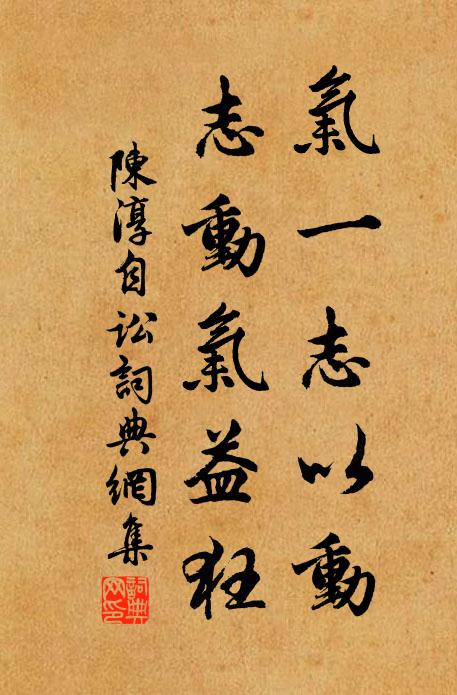 氣一志以動
志動氣益狂
陳淳自訟詞典網集
詞典網印